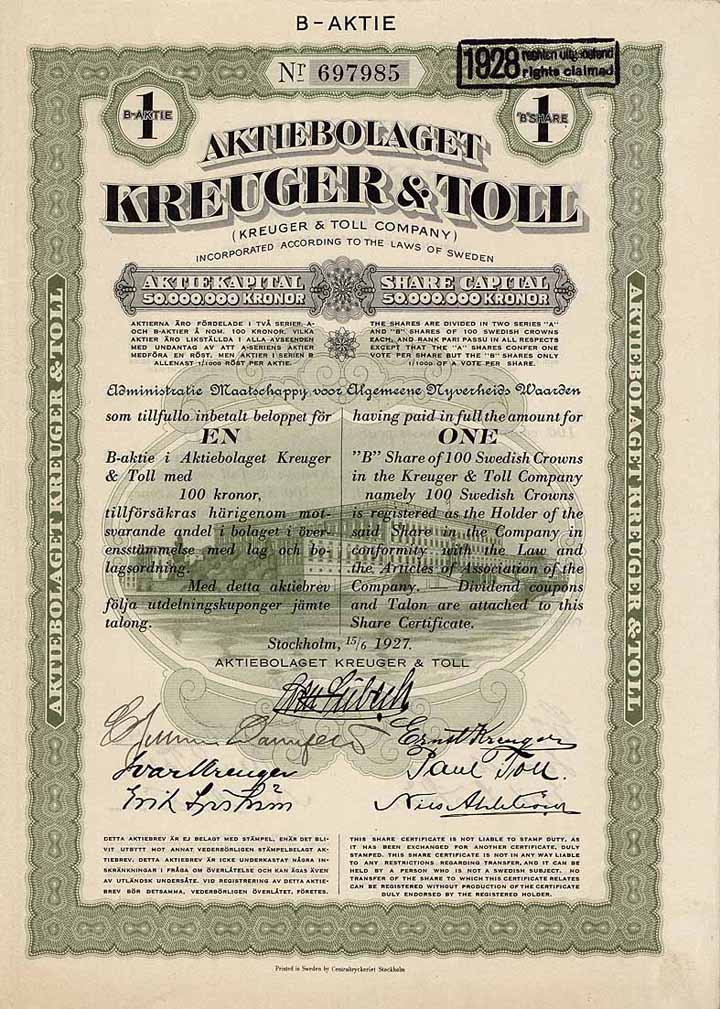 B-AKTIE
Nr 697985
1928 rechten uitgeoefend
rights claimed
1
B-AKTIE
1
"B" SHARE
AKTIEBOLAGET
KREUGER & TOLL
(KREUGER & TOLL COMPANY)
INCORPORATED ACCORDING TO THE LAWS OF SWEDEN
AKTIEKAPITAL
50.000.000 KRONOR
SHARE CAPITAL
50.000.000 KRONOR
AKTIERNA ÄRO FÖRDELADE I TVÅ SERIER, A-
OCH B-AKTIER Å NOM. 100 KRONOR, VILKA
AKTIER ÄRO LIKSTÄLLDA I ALLA AVSEENDEN
MED UNDANTAG AV ATT A-SERIENS AKTIER
MEDFÖRA EN RÖST, MEN AKTIER I SERIEN B
ALLENAST 1/1000 RÖST PER AKTIE.
THE SHARES ARE DIVIDED IN TWO SERIES "A"
AND "B" SHARES OF 100 SWEDISH CROWNS
EACH, AND RANK PARI PASSU IN ALL RESPECTS
EXCEPT THAT THE "A" SHARES CONFER ONE
VOTE PER SHARE BUT THE "B" SHARES ONLY
1/1000 OF A VOTE PER SHARE.
Administratie Maatschappy voor Algemeene Nyverheids Waarden
som tillfullo inbetalt beloppet för
EN
B-aktie i Aktiebolaget Kreuger
& Toll med
100 kronor,
tillförsäkras härigenom mot-
svarande andel i bolaget i över-
ensstämmelse med lag och bo-
lagsordning.
Med detta aktiebrev
följa utdelningskuponger jämte
talong.
having paid in full the amount for
ONE
"B" Share of 100 Swedish Crowns
in the Kreuger & Toll Company
namely 100 Swedish Crowns
is registered as the Holder of the
said Share in the Company in
conformity with the Law and
the Articles of Association of the
Company. Dividend coupons
and Talon are attached to this
Share Certificate.
Stockholm, 15/6 1927.
AKTIEBOLAGET KREUGER & TOLL
Ernst Kreuger
Ivar Kreuger
Paul Toll.
DETTA AKTIEBREV ÄR EJ BELAGT MED STÄMPEL, ENÄR DET BLI-
VIT UTBYTT MOT ANNAT VEDERBÖRLIGEN STÄMPELBELAGT AK-
TIEBREV. DETTA AKTIEBREV ÄR ICKE UNDERKASTAT NÅGRA IN-
SKRÄNKNINGAR I FRÅGA OM ÖVERLÅTELSE OCH KAN ÄGAS ÄVEN
AV UTLÄNDSK UNDERSÅTE. VID REGISTRERING AV DETTA AKTIE-
BREV BÖR DETSAMMA, VEDERBÖRLIGEN ÖVERLÅTET, FÖRETES.
THIS SHARE CERTIFICATE IS NOT LIABLE TO STAMP DUTY, AS
IT HAS BEEN EXCHANGED FOR ANOTHER CERTIFICATE, DULY
STAMPED. THIS SHARE CERTIFICATE IS NOT IN ANY WAY LIABLE
TO ANY RESTRICTIONS REGARDING TRANSFER, AND IT CAN BE
HELD BY A PERSON WHO IS NOT A SWEDISH SUBJECT. NO
TRANSFER OF THE SHARE TO WHICH THIS CERTIFICATE RELATES
CAN BE REGISTERED WITHOUT PRODUCTION OF THE CERTIFICATE
DULY ENDORSED BY THE REGISTERED HOLDER.
AKTIEBOLAGET KREUGER & TOLL
AKTIEBOLAGET KREUGER & TOLL
Printed in Sweden by Centraltryckeriet Stockholm